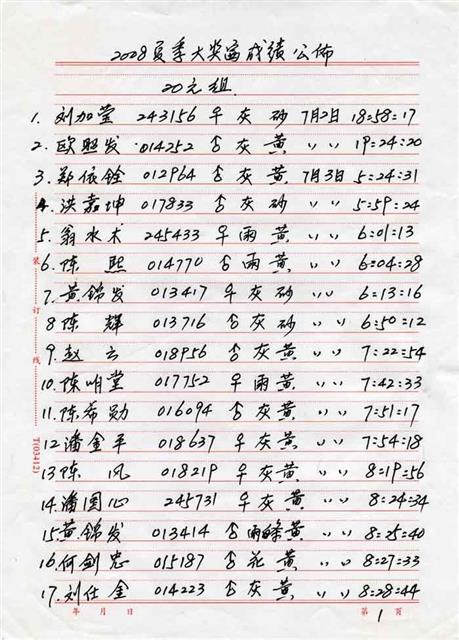 2008夏季大奖当成绩公佈
20元组
1. 刘加莹 243156 ♀ 灰 砂 7月2日 18=58=17
2. 欧照发 014252 ♂ 灰 黄 〃 19=24=20
3. 郑依铨 012964 ♂ 灰 黄 7月3日 5=24=31
4. 洪嘉坤 017833 ♂ 灰 砂 〃 5=59=24
5. 翁水木 245433 ♀ 雨 黄 〃 6=01=13
6. 陈 熙 014770 ♂ 雨 黄 〃 6=04=28
7. 黄锦发 013417 ♀ 灰 砂 〃 6=13=16
8 陈 辉 013716 ♂ 灰 砂 〃 6=50=12
9. 赵 云 018956 ♂ 灰 黄 〃 7=22=54
10. 陈明堂 017752 ♀ 雨 黄 〃 7=42=33
11. 陈希勋 016094 ♂ 灰 黄 〃 7=51=17
12 潘金平 018637 ♀ 灰 黄 〃 7=54=18
13 陈 风 018219 ♀ 灰 黄 〃 8=19=56
14. 潘国心 245731 ♀ 灰 黄 〃 8=24=34
15. 黄锦发 013414 ♂ 雨絳 黄 〃 8=25=40
16. 何剑忠 015187 ♂ 花 黄 〃 8=27=33
17. 刘仕金 014223 ♂ 灰 黄 〃 8=28=44
装订线
T(03412)
年 月 日
第 1 页